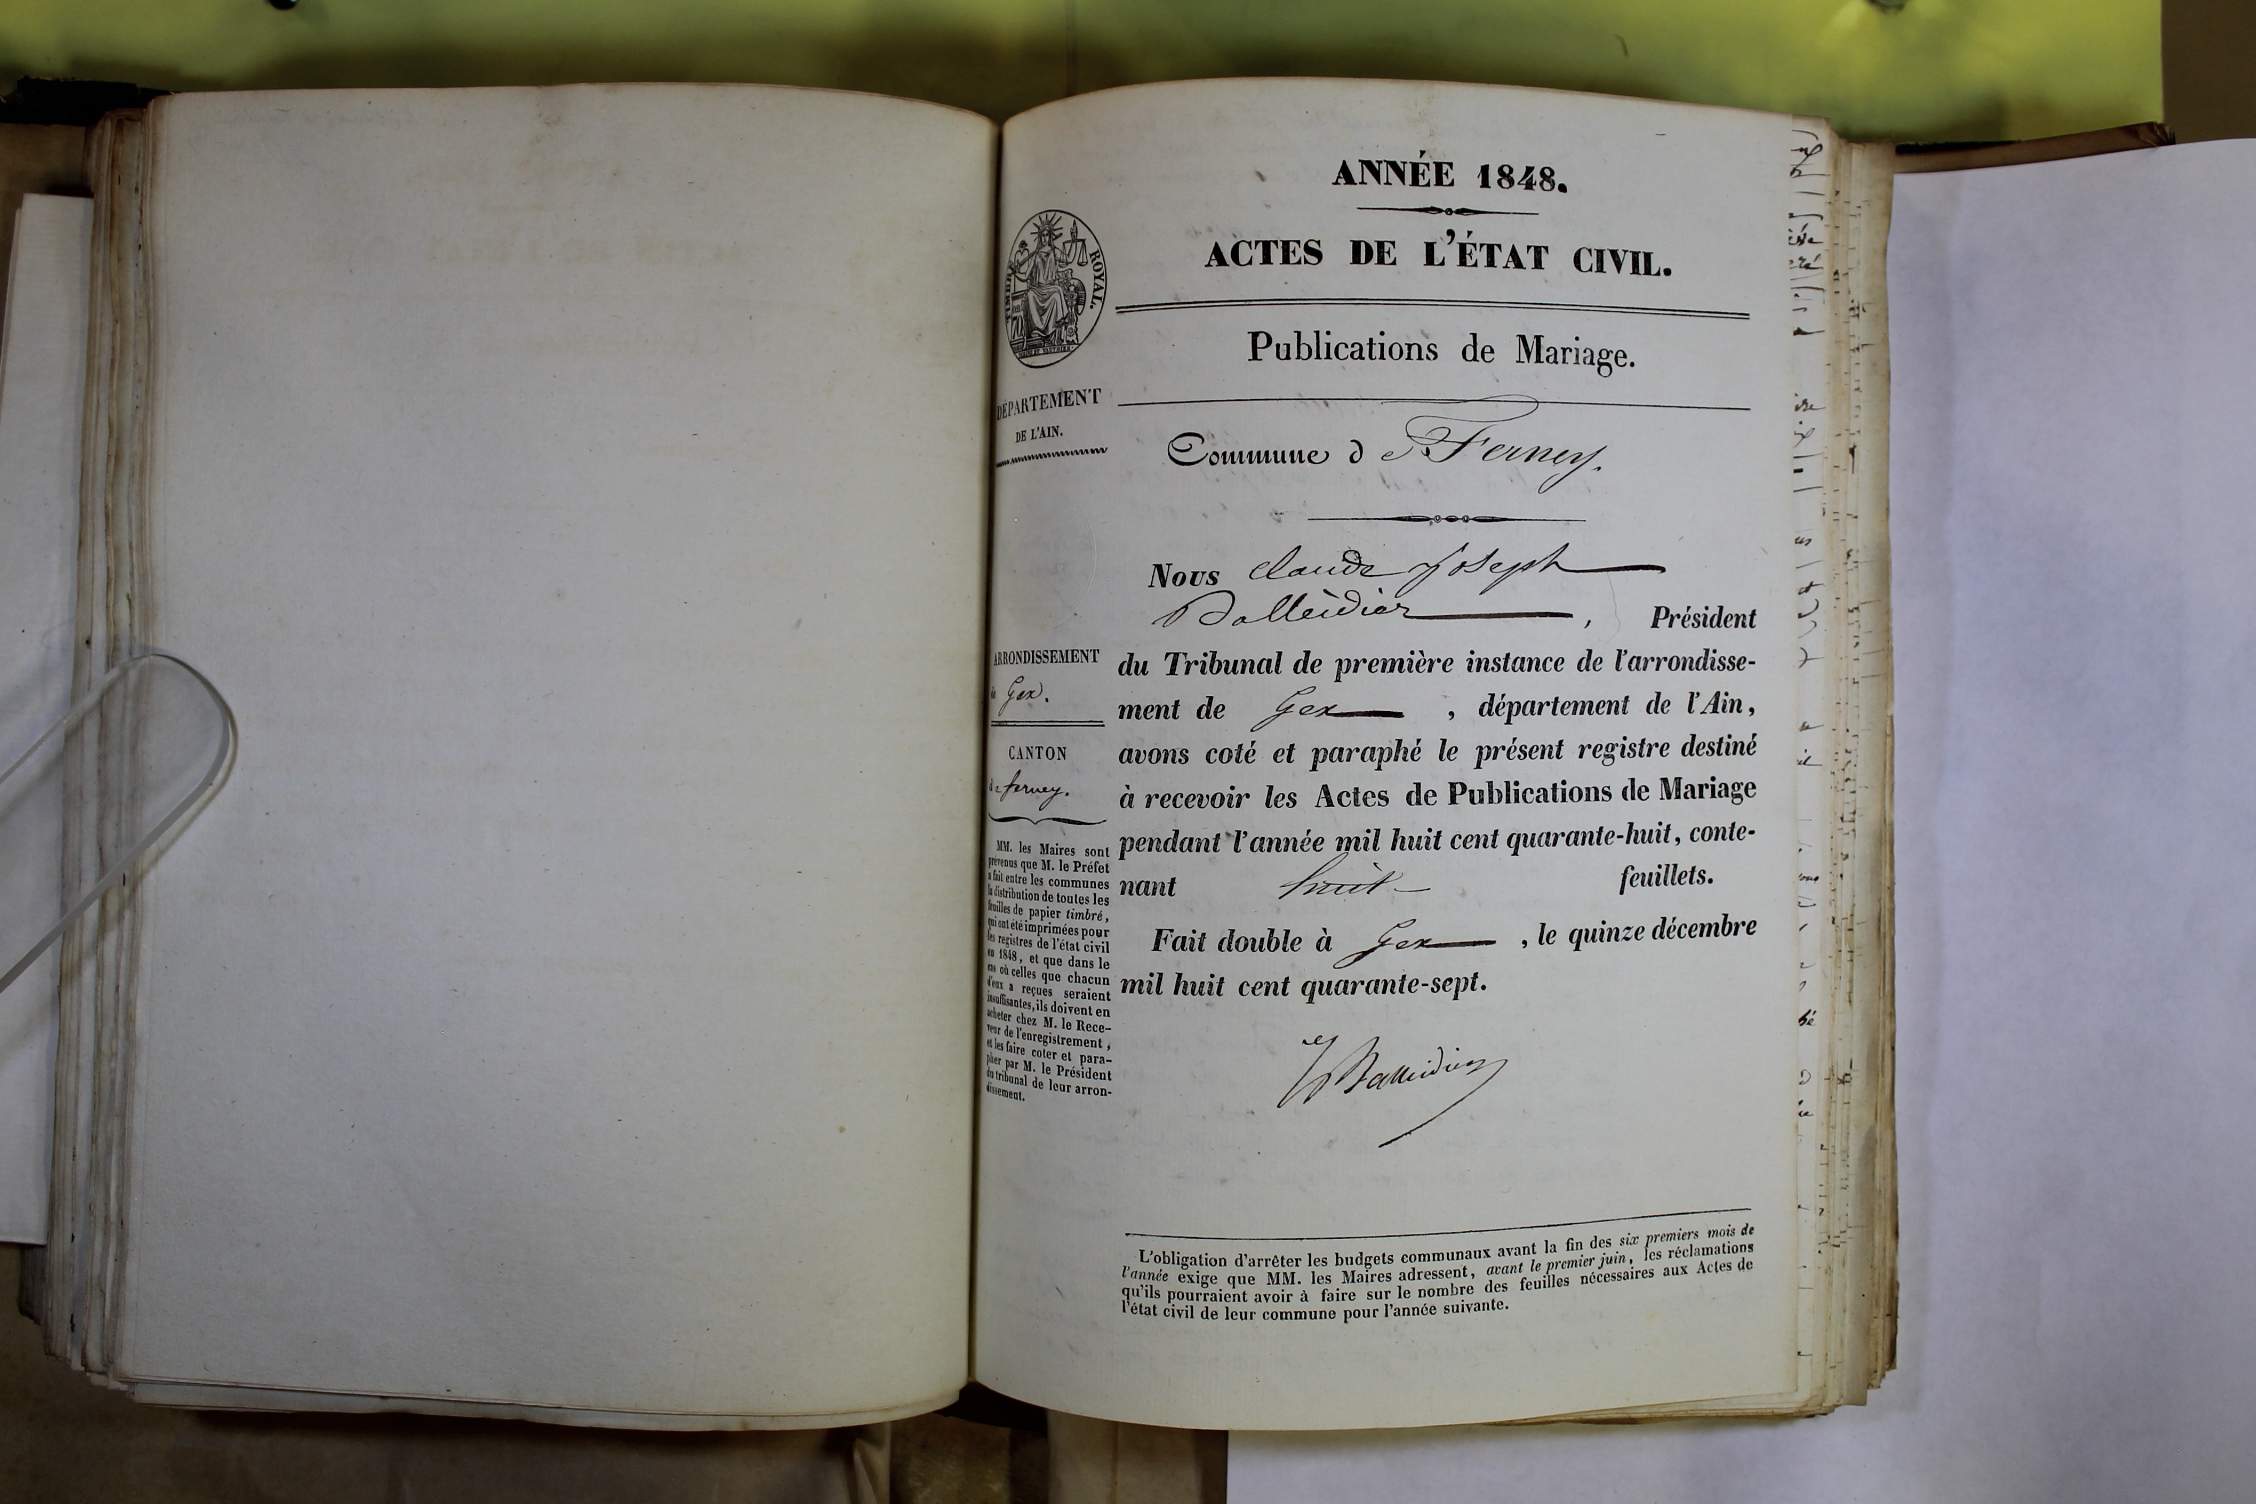 ANNÉE 1848.
ACTES DE L'ÉTAT CIVIL.
Publications de Mariage.
TIMBRE ROYAL.
DÉPARTEMENT
DE L'AIN.
Commune d Ferney.
Nous Claude Joseph
Balleidier, Président
du Tribunal de première instance de l'arrondisse-
ment de Gex, département de l'Ain,
avons coté et paraphé le présent registre destiné
à recevoir les Actes de Publications de Mariage
pendant l'année mil huit cent quarante-huit, conte-
nant huit feuillets.
Fait double à Gex, le quinze décembre
mil huit cent quarante-sept.
Balleidier
ARRONDISSEMENT
de Gex.
CANTON
de ferney.
MM. les Maires sont
prévenus que M. le Préfet
a fait entre les communes
la distribution de toutes les
feuilles de papier timbré,
qui ont été imprimées pour
les registres de l'état civil
en 1848, et que dans le
cas où celles que chacun
d'eux a reçues seraient
insuffisantes, ils doivent en
acheter chez M. le Rece-
veur de l'enregistrement,
et les faire coter et para-
pher par M. le Président
du tribunal de leur arron-
dissement.
L'obligation d'arrêter les budgets communaux avant la fin des six premiers mois de
l'année exige que MM. les Maires adressent, avant le premier juin, les réclamations
qu'ils pourraient avoir à faire sur le nombre des feuilles nécessaires aux Actes de
l'état civil de leur commune pour l'année suivante.